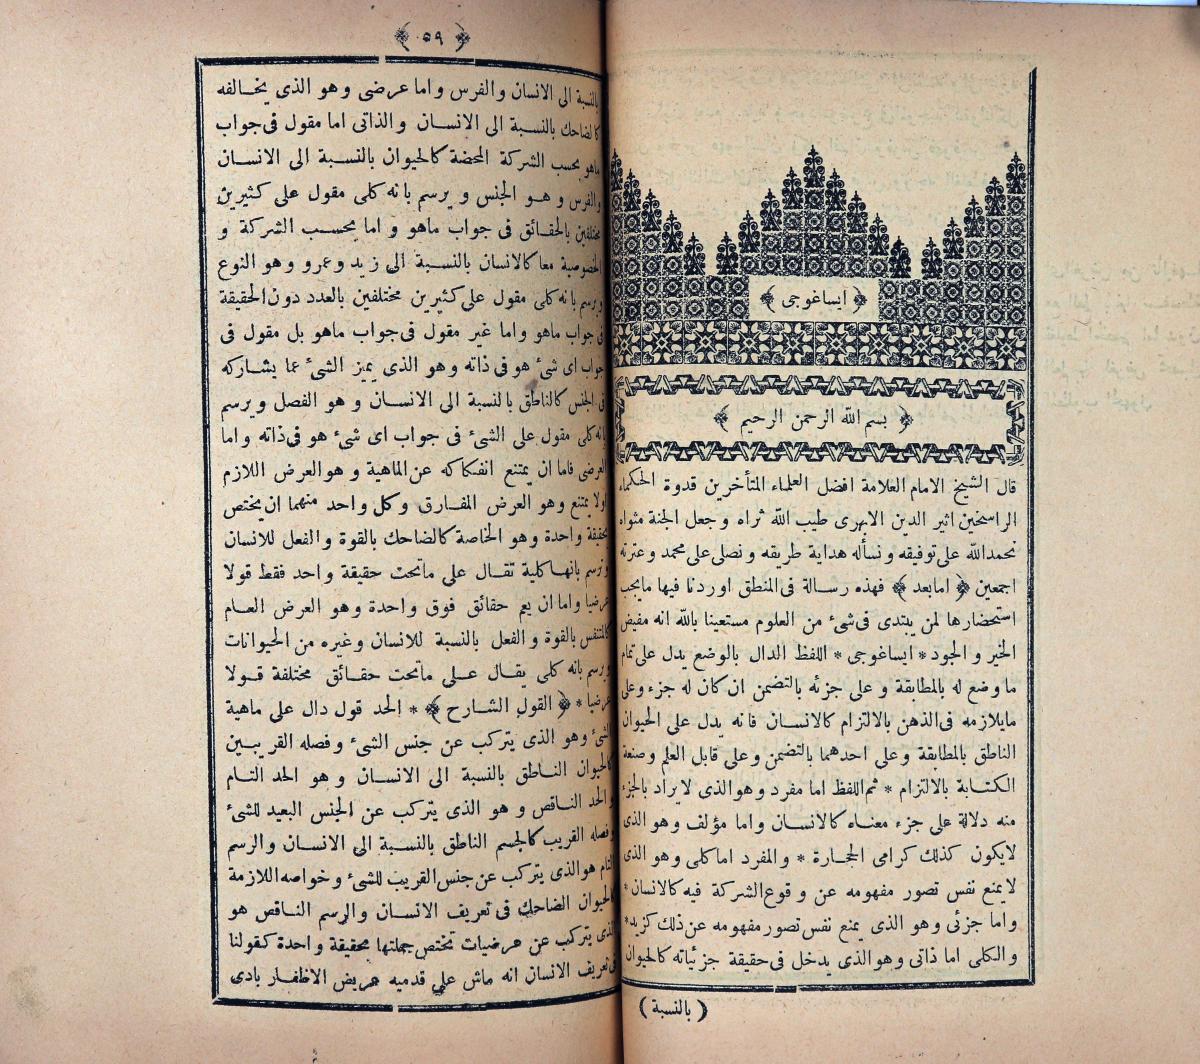 ﴿ ايساغوجى ﴾
﴿ بسم الله الرحمن الرحيم ﴾
قال الشيخ الامام العلامة افضل العلماء المتأخرين قدوة الحكماء
الراسخين اثير الدين الابهرى طيب الله ثراه و جعل الجنة مثواه
نحمدالله على توفيقه و نسأله هداية طريقه و نصلى على محمد و عترته
اجمعين ﴿ امابعد ﴾ فهذه رسالة فى المنطق اوردنا فيها مايجب
استحضارها لمن يبتدى فى شئ من العلوم مستعينا بالله انه مفيض
الخير و الجود * ايساغوجى * اللفظ الدال بالوضع يدل على تمام
ما وضع له بالمطابقة و على جزئه بالتضمن ان كان له جزء وعلى
مايلازمه فى الذهن بالالتزام كالانسان فانه يدل على الحيوان
الناطق بالمطابقة و على احدهما بالتضمن و على قابل العلم و صنعة
الكتابة بالالتزام * ثم اللفظ اما مفرد و هو الذى لا يراد بالجزء
منه دلالة على جزء معناه كالانسان و اما مؤلف و هو الذى
لايكون كذلك كرامى الحجارة * والمفرد اما كلى و هو الذى
لا يمنع نفس تصور مفهومه عن و قوع الشركة فيه كالانسان *
و اما جزئى و هو الذى يمنع نفس تصور مفهومه عن ذلك كزيد *
و الكلى اما ذاتى و هو الذى يدخل فى حقيقة جزئياته كالحيوان
( بالنسبة )
﴿ ٥٩ ﴾
بالنسبة الى الانسان و الفرس و اما عرضى و هو الذى يخالفه
كالضاحك بالنسبة الى الانسان و الذاتى اما مقول فى جواب
ماهو بحسب الشركة المحضة كالحيوان بالنسبة الى الانسان
والفرس و هو الجنس و يرسم بانه كلى مقول على كثيرين
مختلفين بالحقائق فى جواب ماهو و اما بحسب الشركة و
الخصوصية معا كالانسان بالنسبة الى زيد و عمرو و هو النوع
ويرسم بانه كلى مقول على كثيرين مختلفين بالعدد دون الحقيقة
فى جواب ماهو واما غير مقول فى جواب ماهو بل مقول فى
جواب اى شئ هو فى ذاته و هو الذى يميز الشئ عما يشاركه
فى الجنس كالناطق بالنسبة الى الانسان و هو الفصل و يرسم
بانه كلى مقول على الشئ فى جواب اى شئ هو فى ذاته و اما
العرضى فاما ان يمتنع انفكاكه عن الماهية و هو العرض اللازم
اولا يمتنع و هو العرض المفارق و كل و احد منهما ان يختص
بحقيقة و احدة و هو الخاصة كالضاحك بالقوة و الفعل للانسان
و ترسم بانها كلية تقال على ماتحت حقيقة و احد فقط قولا
عرضيا و اما ان يعم حقائق فوق و احدة و هو العرض العام
كالمتنفس بالقوة و الفعل بالنسبة للانسان و غيره من الحيوانات
و يرسم بانه كلى يقال على ماتحت حقائق مختلفة قولا
عرضيا * ﴿ القول الشارح ﴾ * الحد قول دال على ماهية
الشئ و هو الذى يتركب عن جنس الشئ و فصله القريبين
كالحيوان الناطق بالنسبة الى الانسان و هو الحد التام
و الحد الناقص و هو الذى يتركب عن الجنس البعيد للشئ
و فصله القريب كالجسم الناطق بالنسبة الى الانسان و الرسم
التام هو الذى يتركب عن جنس القريب للشئ و خواصه اللازمة
كالحيوان الضاحك فى تعريف الانسان و الرسم الناقص هو
الذى يتركب عن عرضيات تختص جملتها بحقيقة و احدة كقولنا
فى تعريف الانسان انه ماش على قدميه عريض الاظفار بادى